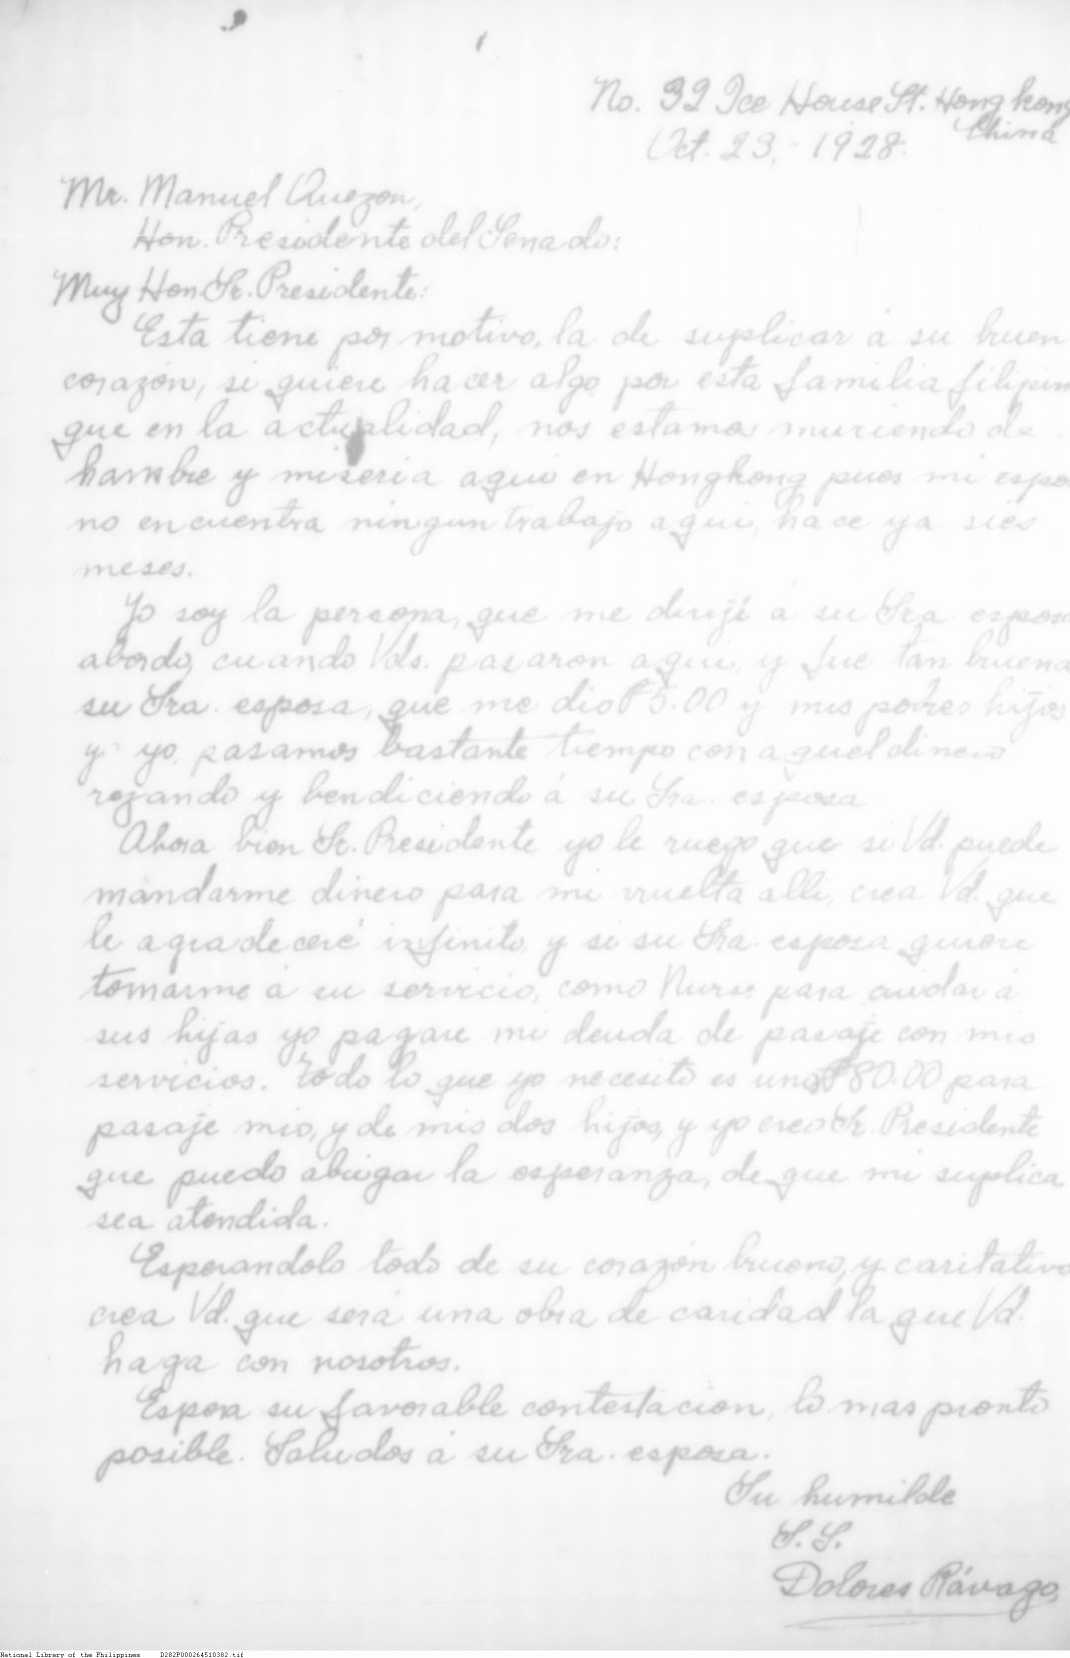 No. 32 Ice House St. Hong kong
China
Oct. 23, 1928.
Mr. Manuel Quezon,
Hon. Presidente del Senado:
Muy Hon Sr. Presidente:
Esta tiene por motivo, la de suplicar á su buen
corazón, si quiere hacer algo por esta familia filipina
que en la actualidad, nos estamos muriendo de
hambre y miseria aqui en Hongkong pues mi esposo
no encuentra ningun trabajo aqui, hace ya sies
meses.
Yo soy la persona, que me dirijí á su Sra esposa
abordo, cuando Vds. pasaron aqui, y fue tan buena
su Sra. esposa, que me dio ₱5.00 y mis pobres hijos
y yo, pasamos bastante tiempo con aquel dinero
rezando y bendiciendo á su Sra. esposa
Ahora bien Sr. Presidente yo le ruego que si Vd. puede
mandarme dinero para mi vuelta alli, crea Vd. que
le agradeceré infinito, y si su Sra. esposa quiere
tomarme á su servicio, como Nurse para cuidar á
sus hijas yo pagare mi deuda de pasaje con mis
servicios. Todo lo que yo necesito es unos ₱80.00 para
pasaje mio, y de mis dos hijos, y yo creo Sr. Presidente
que puedo abrigar la esperanza, de que mi suplica
sea atendida.
Esperandolo todo de su corazón bueno, y caritativo
crea Vd. que será una obra de caridad la que Vd.
haga con nosotros.
Espera su favorable contestacion, lo mas pronto
posible. Saludos á su Sra. esposa.
Su humilde
S. S.
Dolores Rávago,
National Library of the Philippines D282P000264510382.tif